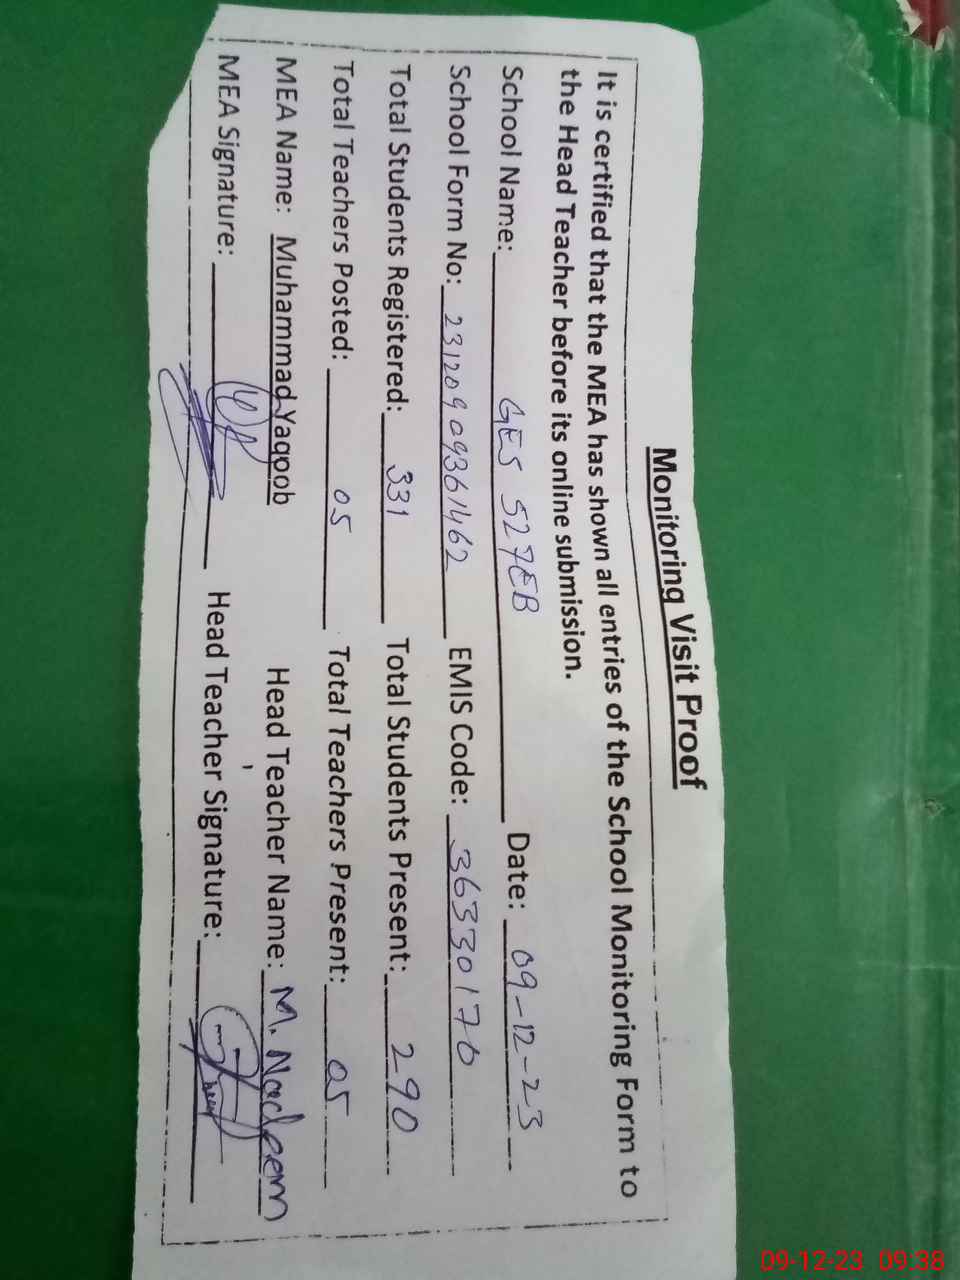 Monitoring Visit Proof
It is certified that the MEA has shown all entries of the School Monitoring Form to
the Head Teacher before its online submission.
School Name: GES 527EB Date: 09-12-23
School Form No: 23120909361462 EMIS Code: 36330176
Total Students Registered: 331 Total Students Present: 290
Total Teachers Posted: 05 Total Teachers Present: 05
MEA Name: Muhammad Yaqoob Head Teacher Name: M. Nadeem
MEA Signature: Head Teacher Signature:
09-12-23 09.38